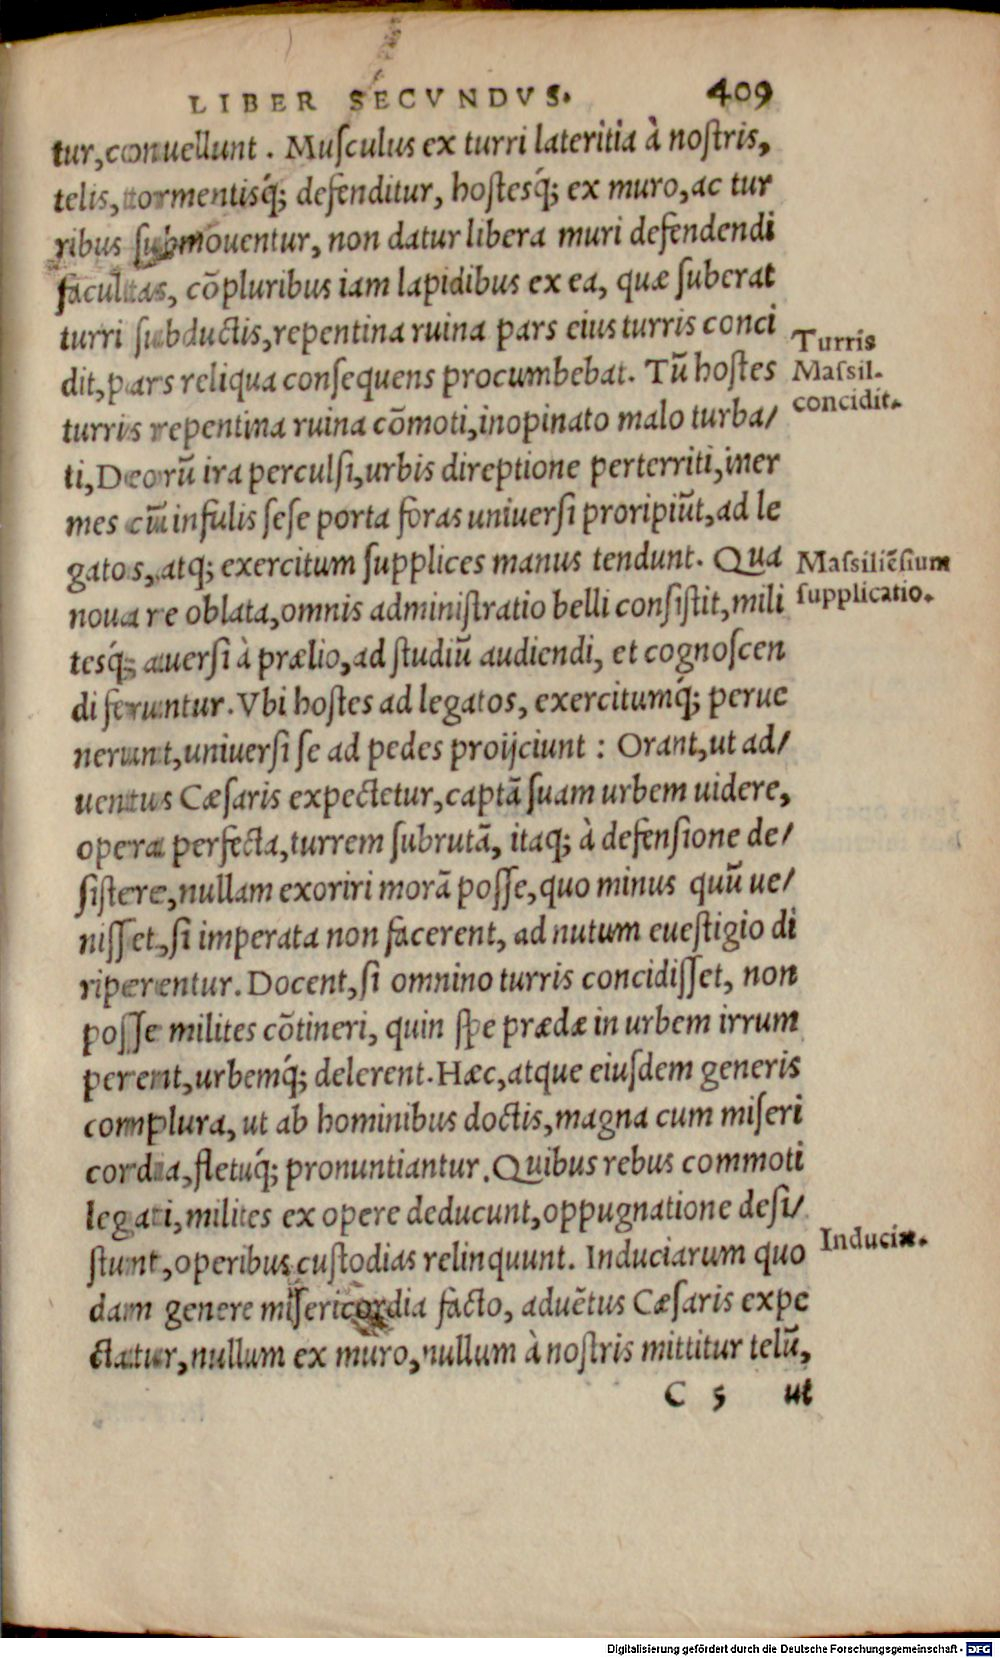 LIBER SECVNDVS. 409
tur, conuellunt. Muſculus ex turri lateritia à noſtris,
telis, tormentisq́; defenditur, hoſtesq́; ex muro, ac tur
ribus ſubmouentur, non datur libera muri defendendi
facultas, cõpluribus iam lapidibus ex ea, quæ ſuberat
turri ſubductis, repentina ruina pars eius turris conci
dit, pars reliqua conſequens procumbebat. Tũ hoſtes
turris repentina ruina cõmoti, inopinato malo turba/
ti, Deorũ ira perculſi, urbis direptione perterriti, iner
mes cũ infulis ſeſe porta foras uniuerſi proripiũt, ad le
gatos, atq; exercitum ſupplices manus tendunt. Qua
noua re oblata, omnis adminiſtratio belli conſiſtit, mili
tesq́; auerſi à prælio, ad ſtudiũ audiendi, et cognoſcen
di feruntur. Vbi hoſtes ad legatos, exercitumq́; perue
nerunt, uniuerſi ſe ad pedes proijciunt : Orant, ut ad/
uentus Cæſaris expectetur, captã ſuam urbem uidere,
opera perfecta, turrem ſubrutã, itaq; à defenſione de/
ſiſtere, nullam exoriri morã poſſe, quo minus quũ ue/
niſſet, ſi imperata non facerent, ad nutum eueſtigio di
riperentur. Docent, ſi omnino turris concidiſſet, non
poſſe milites cõtineri, quin ſpe prædæ in urbem irrum
perent, urbemq́; delerent. Hæc, atque eiuſdem generis
complura, ut ab hominibus doctis, magna cum miſeri
cordia, fletuq́; pronuntiantur. Quibus rebus commoti
legati, milites ex opere deducunt, oppugnatione deſi/
ſtunt, operibus cuſtodias relinquunt. Induciarum quo
dam genere miſericordia facto, aduẽtus Cæſaris expe
ctatur, nullum ex muro, nullum à noſtris mittitur telũ,
C 5 ut
Turris
Maſsil.
concidit.
Maſsiliẽſium
ſupplicatio.
Induciæ.
Digitalisierung gefördert durch die Deutsche Forschungsgemeinschaft - DFG